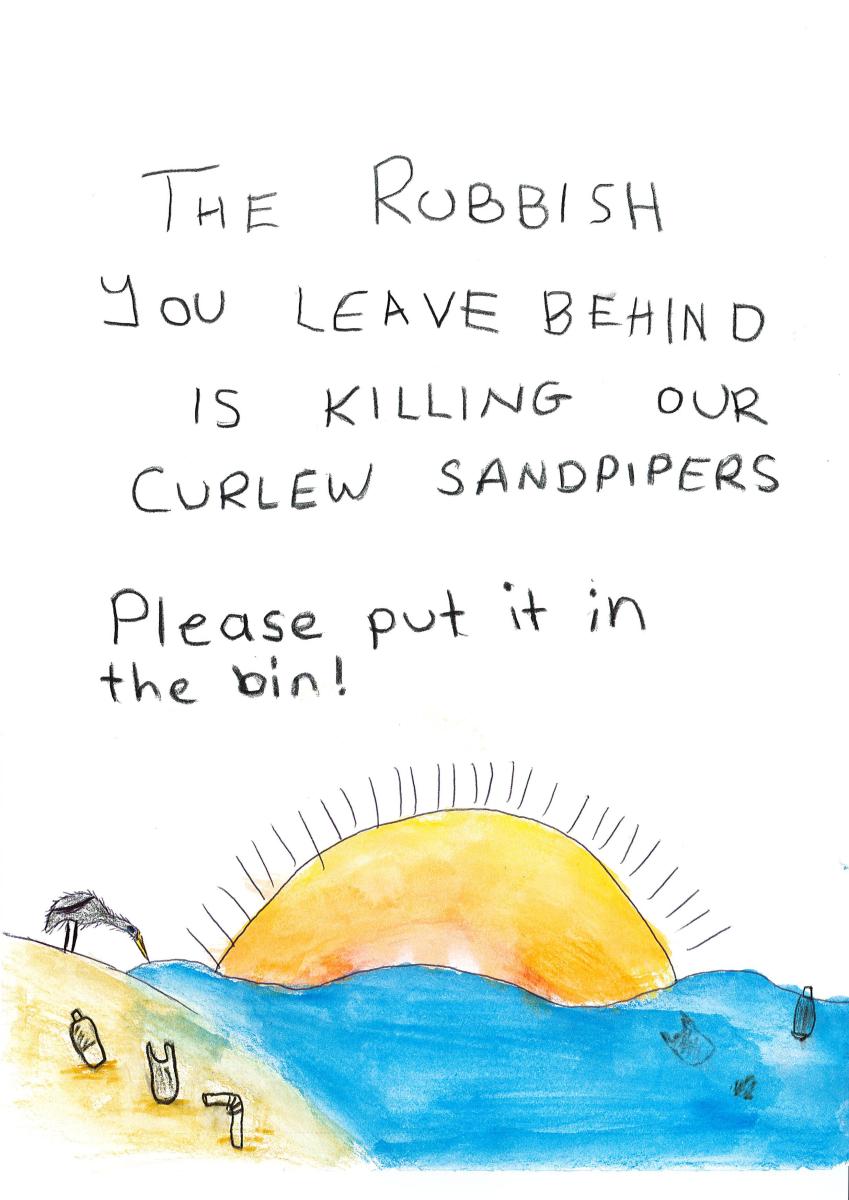 THE RUBBISH
YOU LEAVE BEHIND
IS KILLING OUR
CURLEW SANDPIPERS
Please put it in
the bin!